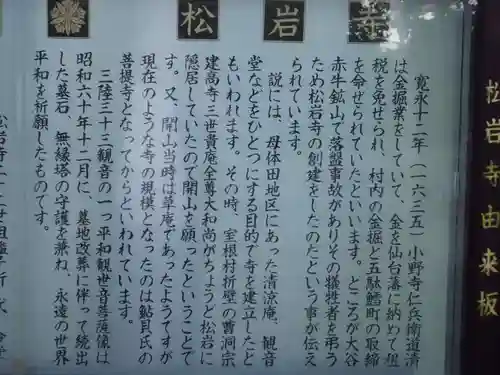 松岩寺
松岩寺由来板
寛永十二年（一六三五）小野寺仁兵衛道清
は金掘業をしていて、金を仙台藩に納めて租
税を免せられ、村内の金掘と五駄鱈町の取締
を命せられていたといいます。ところが大谷
赤牛鉱山で落盤事故がありその犠牲者を弔う
ため松岩寺の創建をしたのたという事が伝え
られています。
説には、母体田地区にあった清涼庵、観音
堂などをひとつにする目的で寺を建立したと
もいわれます。その時、室根村折壁の曹洞宗
建高寺三世貴庵全尊大和尚がちょうど松岩に
隠居していたので開山を願ったということで
す。又、開山当時は草庵であったようてすが
現在のような寺の規模となったのは鮎貝氏の
菩提寺となってからといわれています。
三陸三十三観音の一つ平和観世音菩薩像は
昭和六十年十二月に、墓地改葬に伴って続出
した墓石、無縁塔の守護を兼ね、永遠の世界
平和を祈願したものてす。